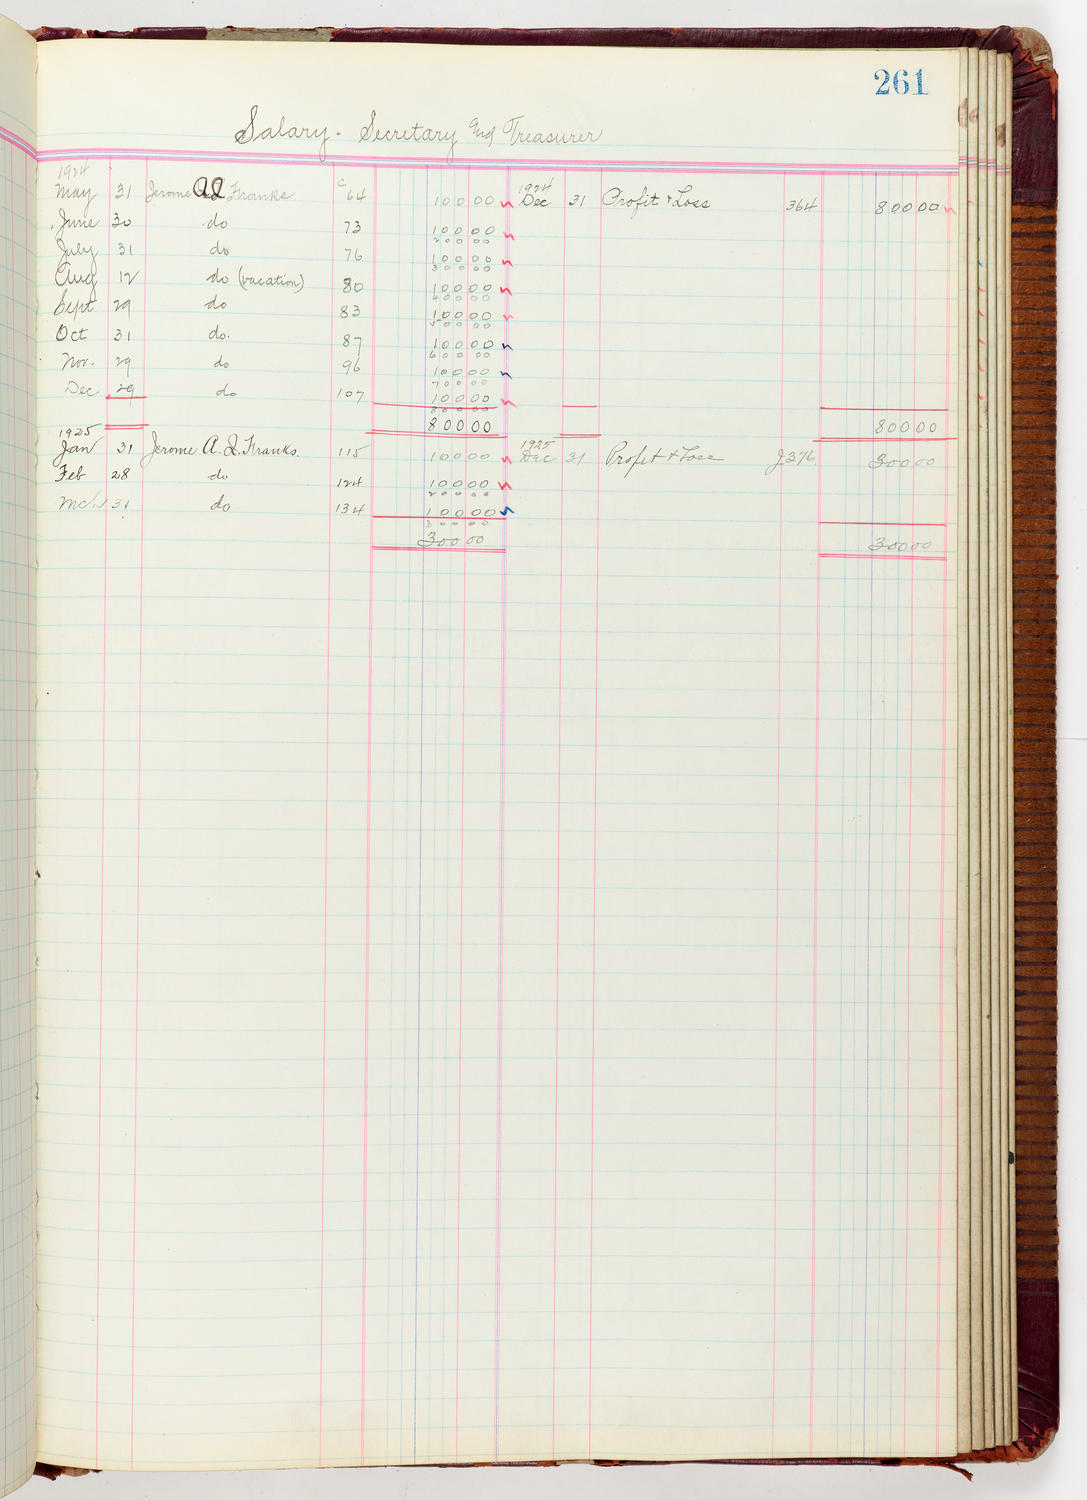 261
Salary. Secretary and Treasurer
1924
May 31 Jerome A. L. Franks C 64 100 00
June 30 do 73 100 00
200 00
July 31 do 76 100 00
300 00
Aug 12 do (vacation) 80 100 00
400 00
Sept 29 do 83 100 00
500 00
Oct 31 do. 87 100 00
600 00
Nov. 29 do 96 100 00
700 00
Dec 29 do 107 100 00
800 00
800 00
1925
Jan 31 Jerome A. L. Franks. 115 100 00
Feb 28 do 124 100 00
200 00
Mch 31 do 134 100 00
300 00
300 00
1924
Dec 31 Profit & Loss 364 800 00
800 00
1925
Dec 31 Profit & Loss J376 300 00
300 00